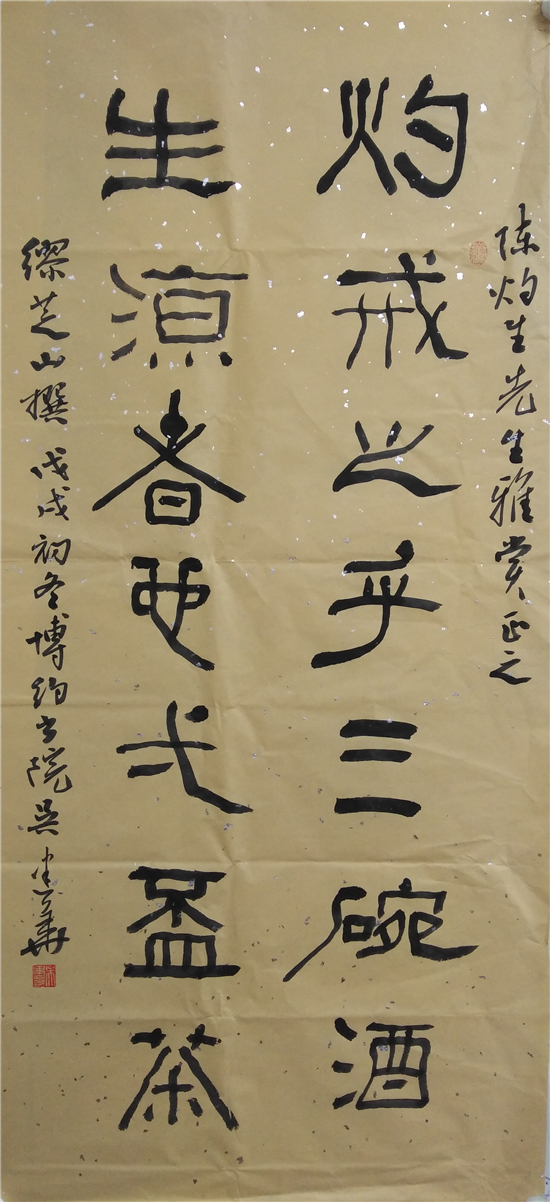 陈灼生先生雅赏正之
灼戒之乎三碗酒
生源者也弌盃茶
缪芝山撰 戊戌初冬博约书院吴华